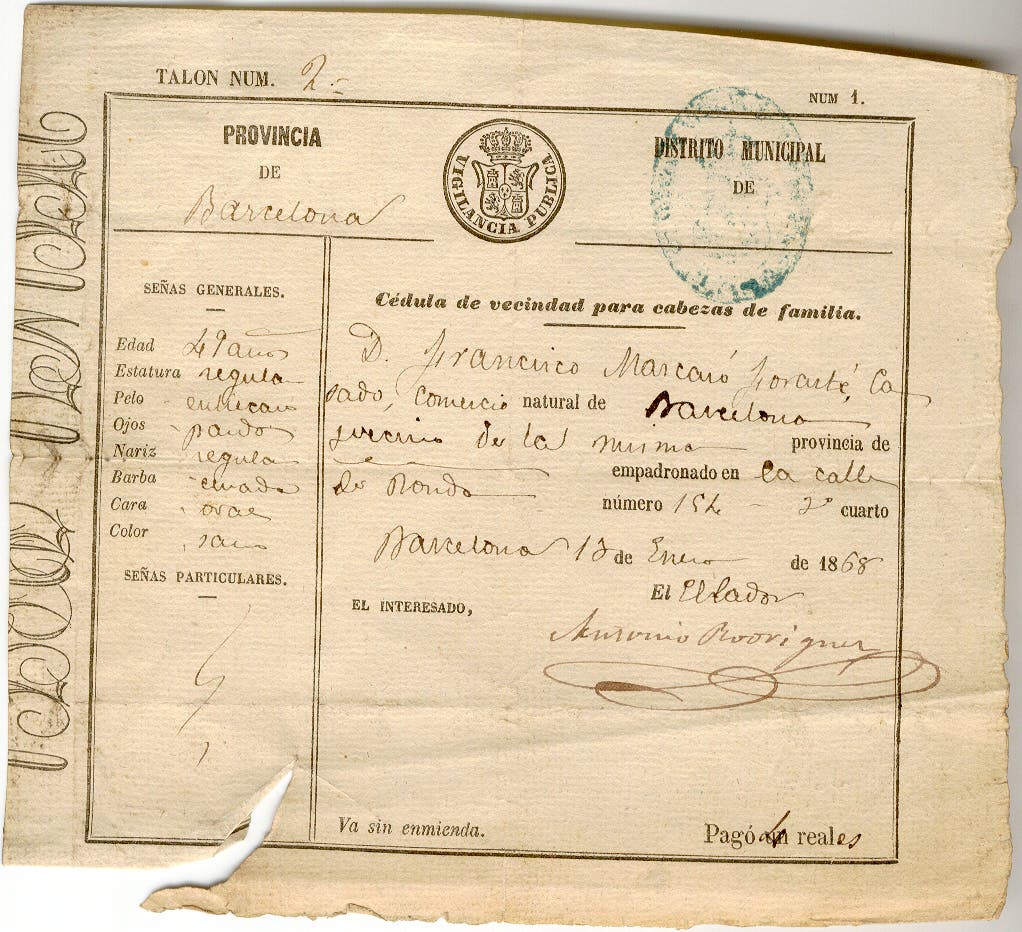 TALON NUM. 2
NUM 1.
PROVINCIA
DE
Barcelona
VIGILANCIA PUBLICA
DISTRITO MUNICIPAL
DE
SEÑAS GENERALES.
Edad 49 años
Estatura regular
Pelo entrecano
Ojos pardos
Nariz regular
Barba cerrada
Cara oval
Color sano
SEÑAS PARTICULARES.
Cédula de vecindad para cabezas de familia.
D. Francisco Marcaró Ca
sado, Comercio natural de Barcelona
y vecino de la misma provincia de
empadronado en la calle
de Ronda número 154 - 2º cuarto
Barcelona 13 de Enero de 1868
El
EL INTERESADO,
Antonio Rodriguez
Va sin enmienda.
Pagó 4 reales